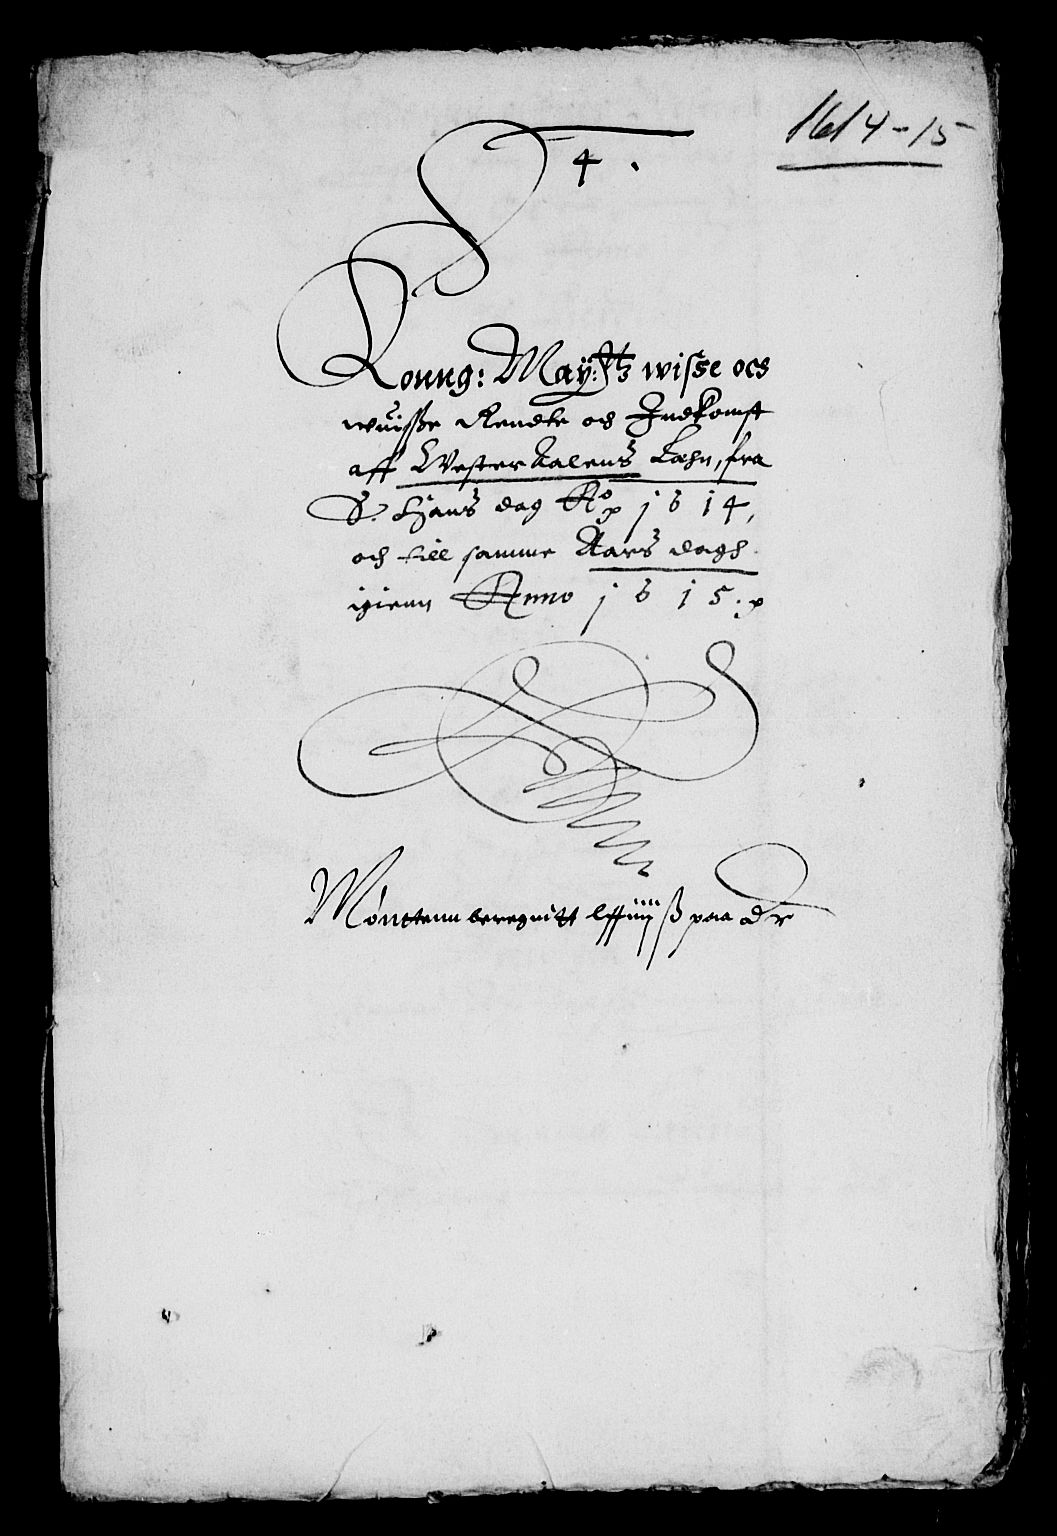 1614-15
4.
Konng: May:tz wisse och
wuisse Rendte och Indkomst
aff WesterAalens Læhn, fra
S. Hans dag Ao 1614,
och till samme Aars dagh
igienn Anno 1615.
Mønttenn beregnitt ß paa Dr